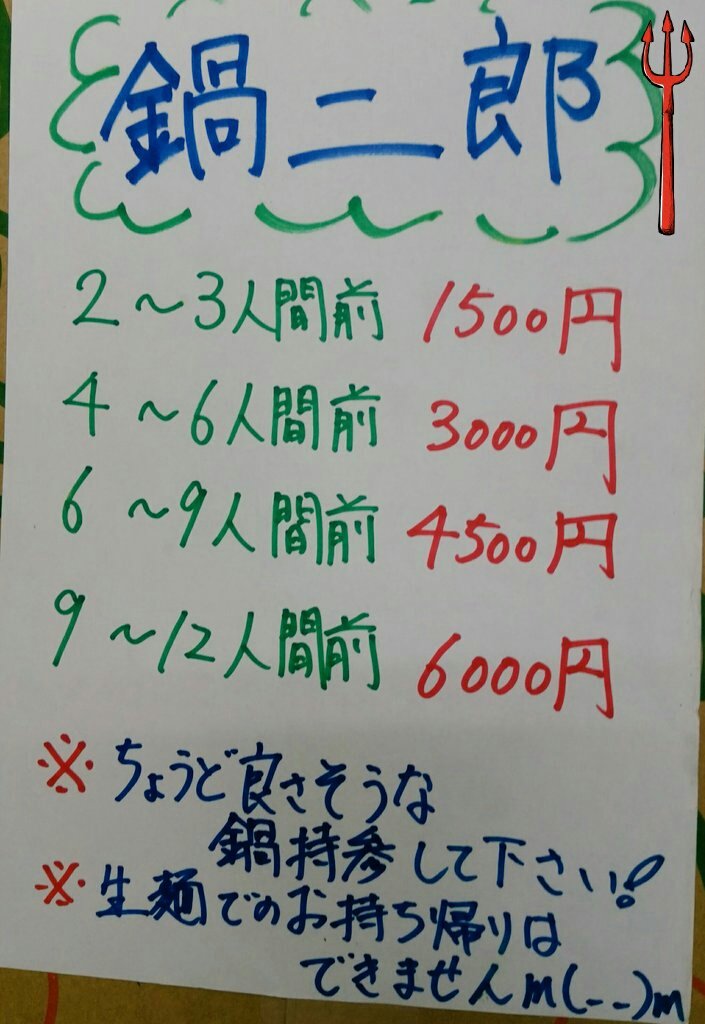 鍋二郎
2～3人間前 1500円
4～6人間前 3000円
6～9人間前 4500円
9～12人間前 6000円
※ちょうど良さそうな
鍋持参して下さい!
※生麺でのお持ち帰りは
できませんm(--)m